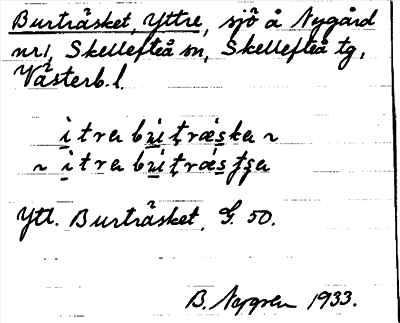 Burträsket, Yttre, sjö å Nygård
nr 1, Skellefteå sn, Skellefteå tg,
Västerb. l.
ìtrabúitræska ~
~ ìtrabúitræsʈʂa
Ytt. Burträsket, G. 50.
B. Nygren 1933.